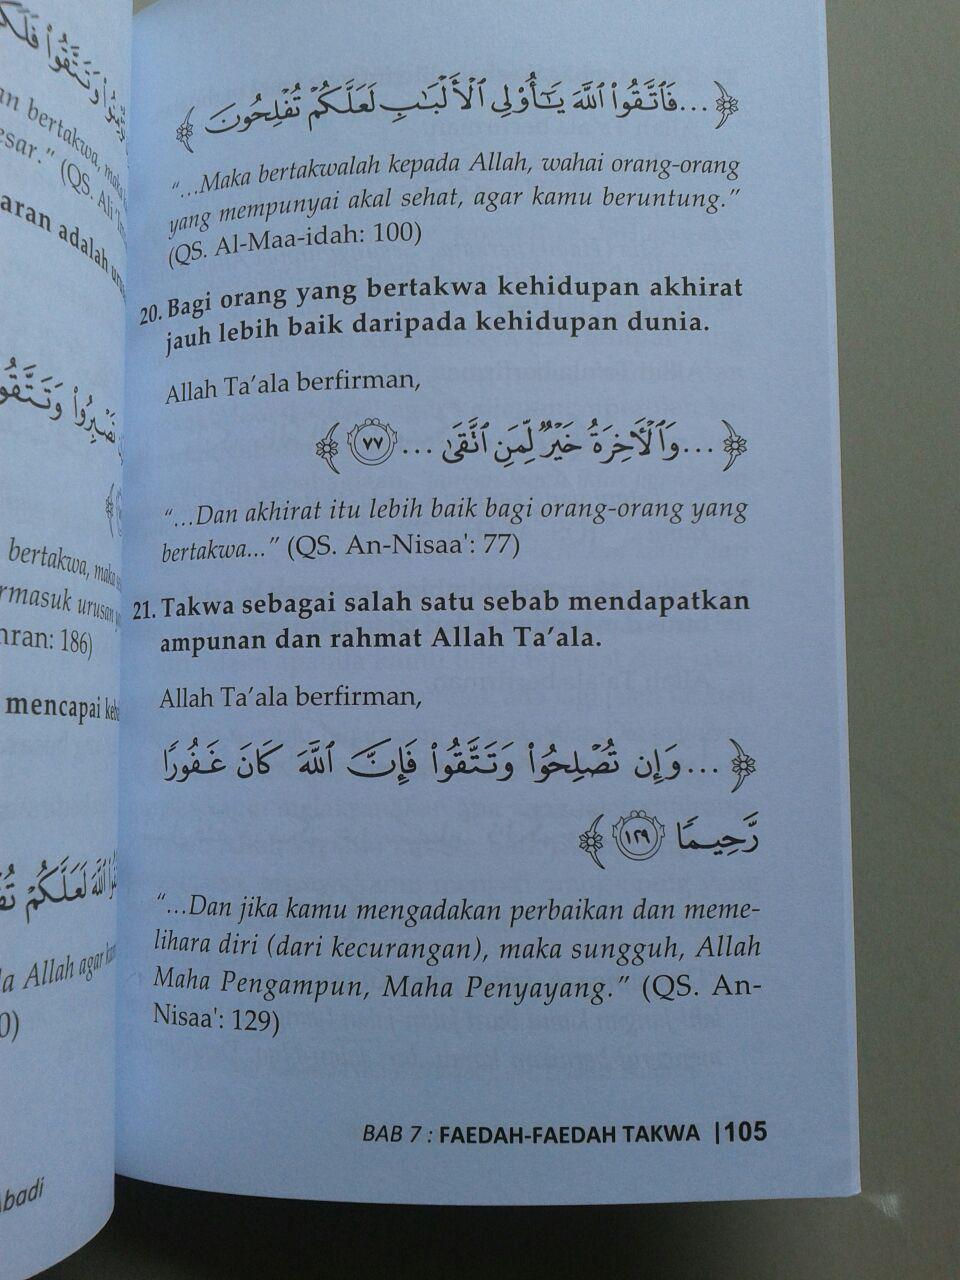 ﴿...فَٱتَّقُوا۟ ٱللَّهَ يَـٰٓأُو۟لِى ٱلْأَلْبَـٰبِ لَعَلَّكُمْ تُفْلِحُونَ ﴾
“...Maka bertakwalah kepada Allah, wahai orang-orang
yang mempunyai akal sehat, agar kamu beruntung.”
(QS. Al-Maa-idah: 100)
20. Bagi orang yang bertakwa kehidupan akhirat
jauh lebih baik daripada kehidupan dunia.
Allah Ta’ala berfirman,
﴿...وَٱلْـَٔاخِرَةُ خَيْرٌ لِّمَنِ ٱتَّقَىٰ ... ٧٧ ﴾
“...Dan akhirat itu lebih baik bagi orang-orang yang
bertakwa...” (QS. An-Nisaa': 77)
21. Takwa sebagai salah satu sebab mendapatkan
ampunan dan rahmat Allah Ta’ala.
Allah Ta’ala berfirman,
﴿...وَإِن تُصْلِحُوا۟ وَتَتَّقُوا۟ فَإِنَّ ٱللَّهَ كَانَ غَفُورًا
رَّحِيمًا ١٢٩ ﴾
“...Dan jika kamu mengadakan perbaikan dan meme-
lihara diri (dari kecurangan), maka sungguh, Allah
Maha Pengampun, Maha Penyayang.” (QS. An-
Nisaa': 129)
BAB 7 : FAEDAH-FAEDAH TAKWA |105